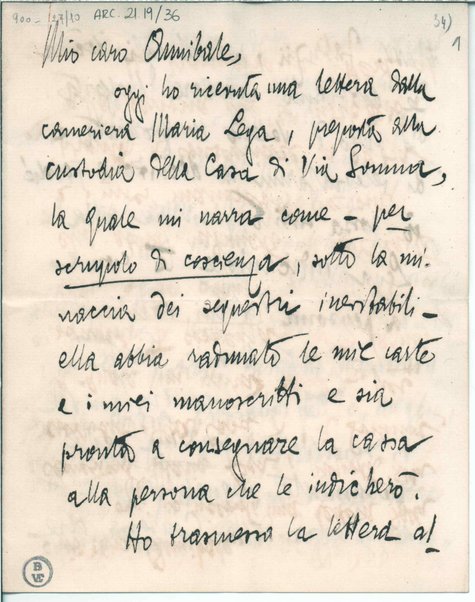 900 - 127/10 ARC. 21.19/36
34)
1
Mio caro Annibale,
oggi ho ricevuta una lettera dalla
cameriera Maria Lega, preposta alla
custodia della Casa di Via Somma,
la quale mi narra come – per
scrupolo di coscienza, sotto la mi-
naccia dei sequestri inevitabili –
ella abbia radunato le mie carte
e i miei manoscritti e sia
pronta a consegnare la cassa
alla persona che le indicherò.
Ho trasmessa la lettera al
B
VE